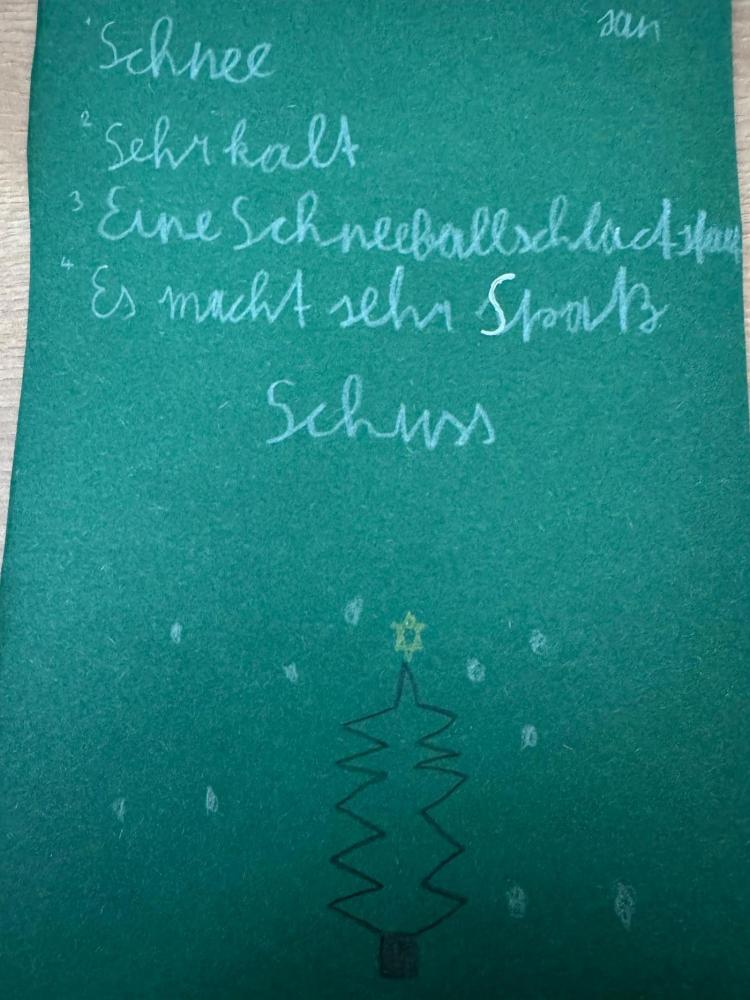 san
1 Schnee
2 Sehr kalt
3 Eine Schneeballschlact
4 Es macht sehr Spaß
Schuss